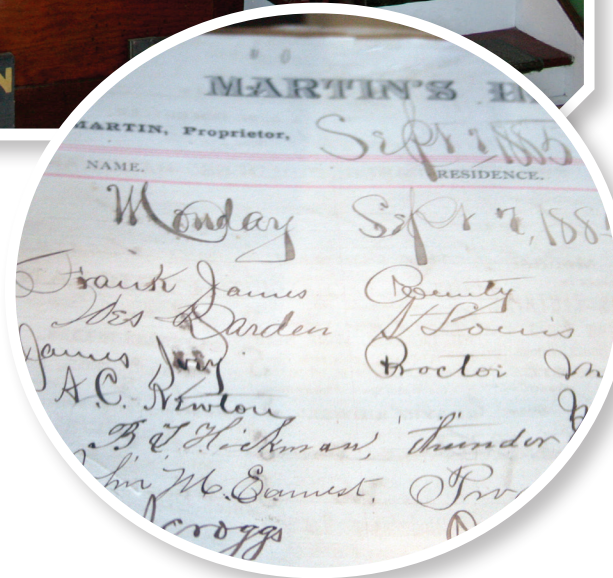 N
MARTIN'S
MARTIN, Proprietor, Sept 7, 1885
NAME. RESIDENCE.
Monday Sept 7, 188
Frank James County
Des Barden St Louis
James Proctor M
A. C. Newton
B T Hickman, thunder
M. Earnest.
Scroggs